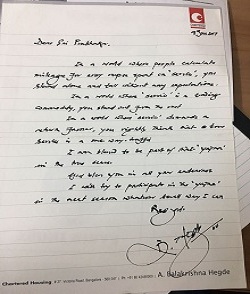 Dear Sri Prabhakar,
In a world where people calculate
mileage for every rupee spent on 'service', you
stand alone and tall without any expectations.
In a world where 'service' is a
commodity, you stand out from the rest
In a world where 'service' demands a
return favour, you rightly think that
service is a one way traffic
I am proud to be part of this 'yajna'
in the true sense.
God bless you in all your endeavours
I wish to participate in the 'yajna'
in the next season whatever small way I can
Regards
Chartered Housing # 27 Victoria Road, Bangalore
A. Balakrishna Hegde